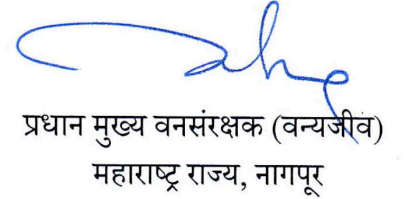 प्रधान मुख्य वनसंरक्षक (वन्यजीव)
महाराष्ट्र राज्य, नागपूर